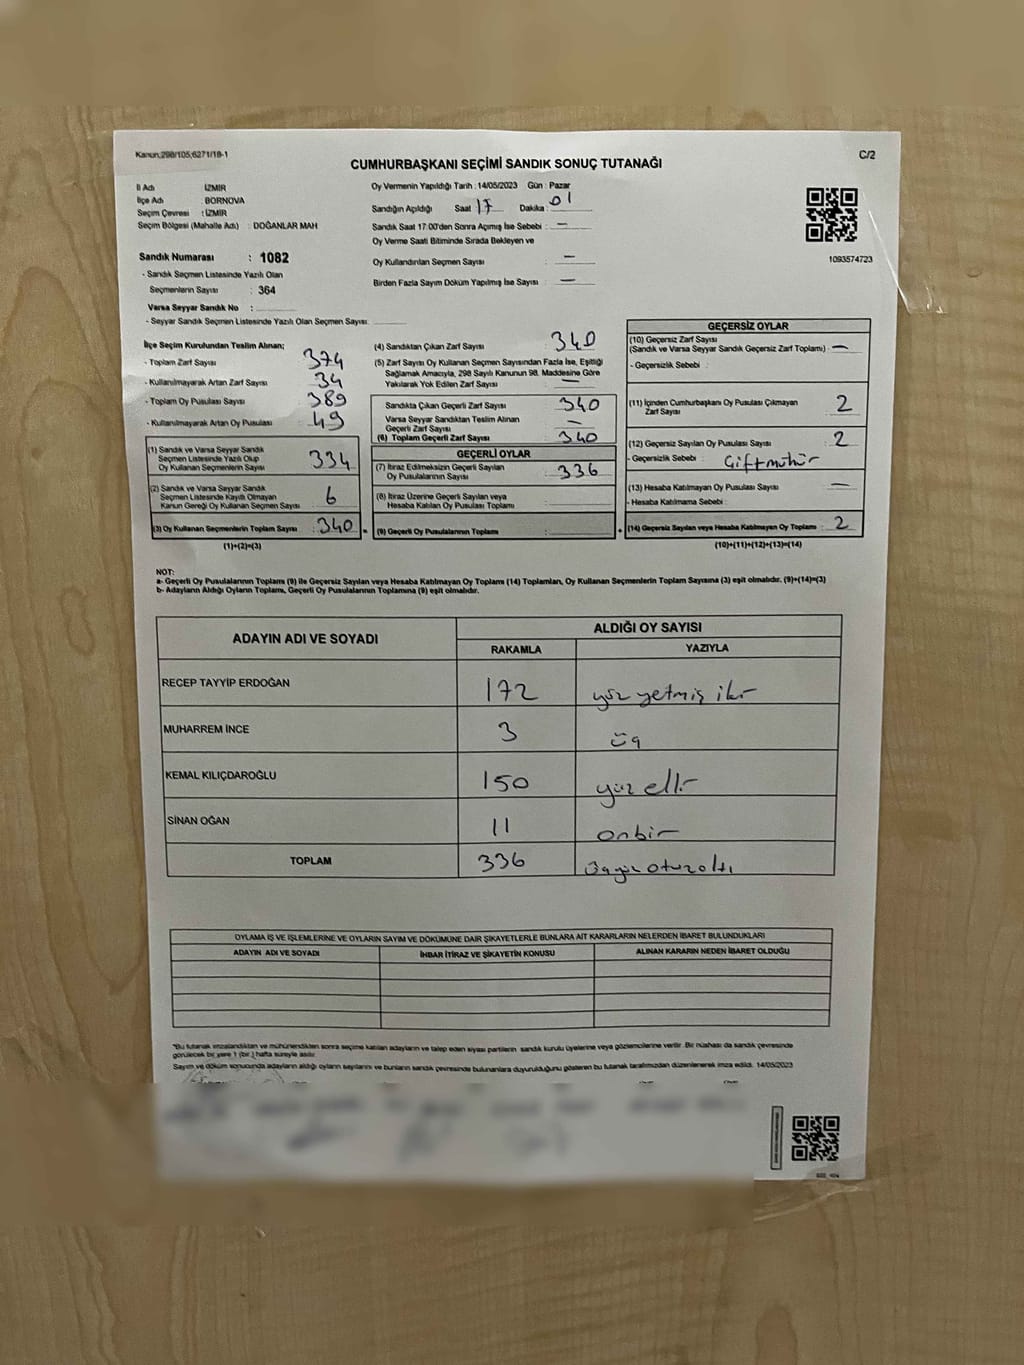 Kanun;298/105;6271/18-1
C/2
CUMHURBAŞKANI SEÇİMİ SANDIK SONUÇ TUTANAĞI
İl Adı : İZMİR
İlçe Adı : BORNOVA
Seçim Çevresi : İZMİR
Seçim Bölgesi (Mahalle Adı) : DOĞANLAR MAH
Sandık Numarası : 1082
- Sandık Seçmen Listesinde Yazılı Olan
Seçmenlerin Sayısı : 364
Varsa Seyyar Sandık No :
- Seyyar Sandık Seçmen Listesinde Yazılı Olan Seçmen Sayısı:
Oy Vermenin Yapıldığı Tarih : 14/05/2023 Gün : Pazar
Sandığın Açıldığı Saat 17 Dakika 01
Sandık Saat 17.00'den Sonra Açımış İse Sebebi : —
Oy Verme Saati Bitiminde Sırada Bekleyen ve
Oy Kullandırılan Seçmen Sayısı : —
Birden Fazla Sayım Döküm Yapılmış İse Sayısı : —
1093574723
İlçe Seçim Kurulundan Teslim Alınan;
- Toplam Zarf Sayısı : 374
- Kullanılmayarak Artan Zarf Sayısı : 34
- Toplam Oy Pusulası Sayısı : 389
- Kullanılmayarak Artan Oy Pusulası : 49
(1) Sandık ve Varsa Seyyar Sandık
Seçmen Listesinde Yazılı Olup
Oy Kullanan Seçmenlerin Sayısı : 334
(2) Sandık ve Varsa Seyyar Sandık
Seçmen Listesinde Kayıtlı Olmayan
Kanun Gereği Oy Kullanan Seçmen Sayısı : 6
(3) Oy Kullanan Seçmenlerin Toplam Sayısı : 340
(1)+(2)=(3)
(4) Sandıktan Çıkan Zarf Sayısı : 340
(5) Zarf Sayısı Oy Kullanan Seçmen Sayısından Fazla İse, Eşitliği
Sağlamak Amacıyla, 298 Sayılı Kanunun 98. Maddesine Göre
Yakılarak Yok Edilen Zarf Sayısı : —
Sandıkta Çıkan Geçerli Zarf Sayısı : 340
Varsa Seyyar Sandıktan Teslim Alınan
Geçerli Zarf Sayısı : —
(6) Toplam Geçerli Zarf Sayısı : 340
GEÇERLİ OYLAR
(7) İtiraz Edilmeksizin Geçerli Sayılan
Oy Pusulalarının Sayısı : 336
(8) İtiraz Üzerine Geçerli Sayılan veya
Hesaba Katılan Oy Pusulası Toplamı :
(9) Geçerli Oy Pusulalarının Toplamı :
GEÇERSİZ OYLAR
(10) Geçersiz Zarf Sayısı
(Sandık ve Varsa Seyyar Sandık Geçersiz Zarf Toplamı) : —
- Geçersizlik Sebebi :
(11) İçinden Cumhurbaşkanı Oy Pusulası Çıkmayan
Zarf Sayısı : 2
(12) Geçersiz Sayılan Oy Pusulası Sayısı : 2
- Geçersizlik Sebebi : Çift mühür
(13) Hesaba Katılmayan Oy Pusulası Sayısı : —
- Hesaba Katılmama Sebebi :
(14) Geçersiz Sayılan veya Hesaba Katılmayan Oy Toplamı : 2
(10)+(11)+(12)+(13)=(14)
NOT:
a- Geçerli Oy Pusulalarının Toplamı (9) ile Geçersiz Sayılan veya Hesaba Katılmayan Oy Toplamı (14) Toplamları, Oy Kullanan Seçmenlerin Toplam Sayısına (3) eşit olmalıdır. (9)+(14)=(3)
b- Adayların Aldığı Oyların Toplamı, Geçerli Oy Pusulalarının Toplamına (9) eşit olmalıdır.
ADAYIN ADI VE SOYADI ALDIĞI OY SAYISI
RAKAMLA YAZIYLA
RECEP TAYYİP ERDOĞAN 172 yüz yetmiş iki
MUHARREM İNCE 3 üç
KEMAL KILIÇDAROĞLU 150 yüz elli
SİNAN OĞAN 11 onbir
TOPLAM 336 üçyüz otuzaltı
OYLAMA İŞ VE İŞLEMLERİNE VE OYLARIN SAYIM VE DÖKÜMÜNE DAİR ŞİKAYETLERLE BUNLARA AİT KARARLARIN NELERDEN İBARET BULUNDUKLARI
ADAYIN ADI VE SOYADI İHBAR İTİRAZ VE ŞİKAYETİN KONUSU ALINAN KARARIN NEDEN İBARET OLDUĞU
"Bu tutanak imzalandıktan ve mühürlendikten sonra seçime katılan adayların ve talep eden siyasi partilerin sandık kurulu üyelerine veya gözlemcilerine verilir. Bir nüshası da sandık çevresinde
görülecek bir yere 1 (bir ) hafta süreyle asılır.
Sayım ve döküm sonucunda adayların aldığı oyların sayılarını ve bunların sandık çevresinde bulunanlara duyurulduğunu gösteren bu tutanak tarafımızdan düzenlenerek imza edildi. 14/05/2023